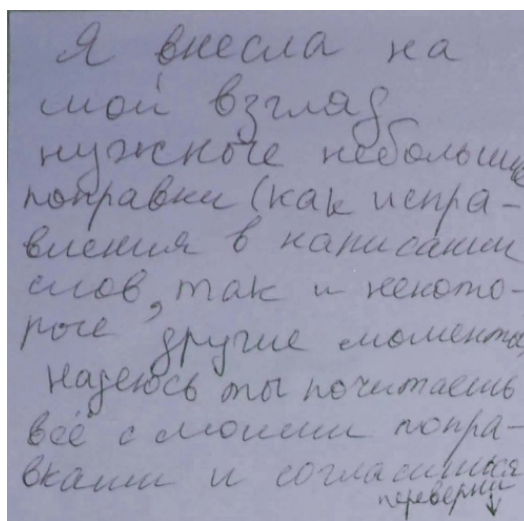 Я внесла на
мой взгляд
нужные небольшие
поправки (как испра-
вления в написании
слов, так и некото-
рые другие моменты
Надеюсь ты почитаешь
всё с моими попра-
вками и согласишься
переверни ↓